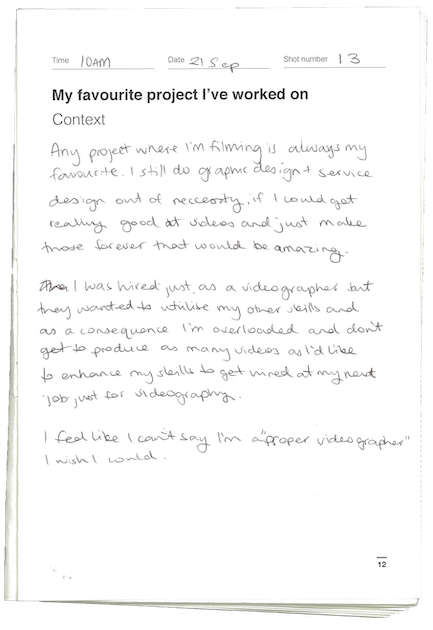 Time 10AM Date 21 Sep Shot number 13
My favourite project I've worked on
Context
Any project where I'm filming is always my
favourite. I still do graphic design + service
design out of neccesity, if I could get
really good at videos and just make
those forever that would be amazing.
I was hired just as a videographer but
they wanted to utilise my other skills and
as a consequence I'm overloaded and don't
get to produce as many videos as I'd like
to enhance my skills to get hired at my next
job just for videography.
I feel like I can't say I'm a "proper videographer"
I wish I could.
12